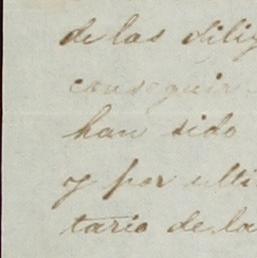 de las dilig
conseguir
han sido
y por ulti
tario de la